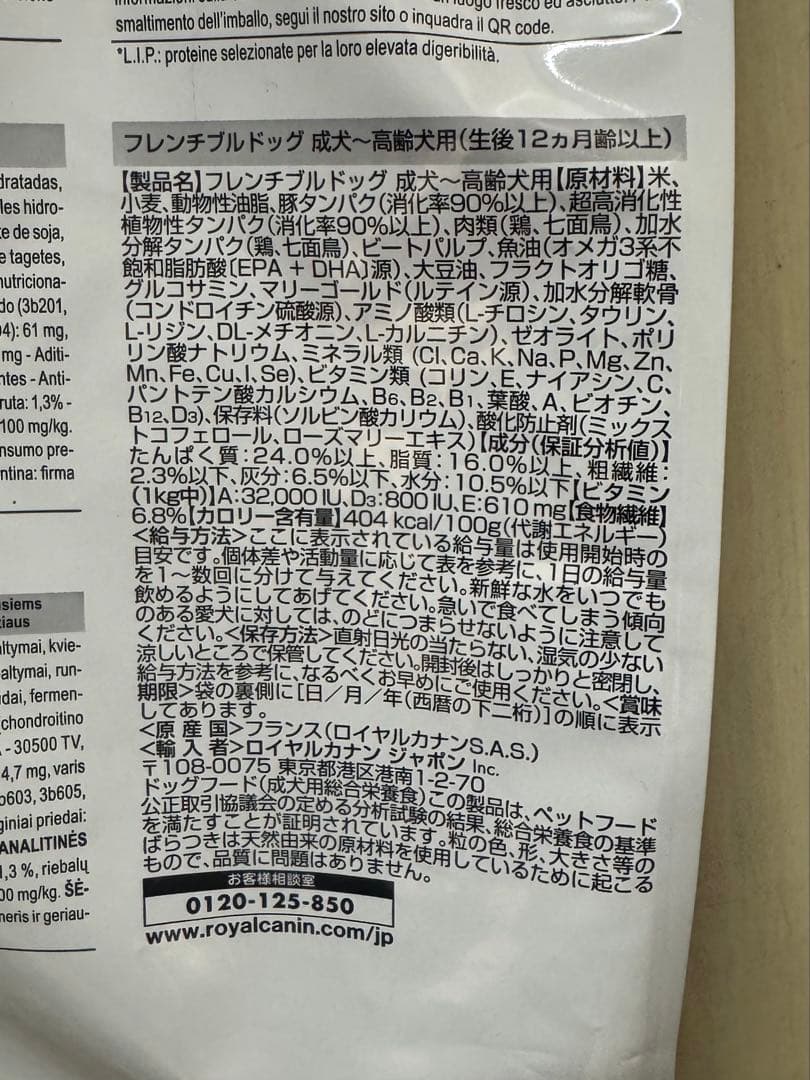 smaltimento dell'imballo, segui il nostro sito o inquadra il QR code.
*L.I.P.: proteine selezionate per la loro elevata digeribilità.
フレンチブルドッグ 成犬～高齢犬用(生後12ヵ月齢以上)
【製品名】フレンチブルドッグ 成犬～高齢犬用【原材料】米、
小麦、動物性油脂、豚タンパク(消化率90%以上)、超高消化性
植物性タンパク(消化率90%以上)、肉類(鶏、七面鳥)、加水
分解タンパク(鶏、七面鳥)、ビートパルプ、魚油(オメガ3系不
飽和脂肪酸〔EPA + DHA〕源)、大豆油、フラクトオリゴ糖、
グルコサミン、マリーゴールド(ルテイン源)、加水分解軟骨
(コンドロイチン硫酸源)、アミノ酸類(L-チロシン、タウリン、
L-リジン、DL-メチオニン、L-カルニチン)、ゼオライト、ポリ
リン酸ナトリウム、ミネラル類(Cl、Ca、K、Na、P、Mg、Zn、
Mn、Fe、Cu、I、Se)、ビタミン類(コリン、E、ナイアシン、C、
パントテン酸カルシウム、B6、B2、B1、葉酸、A、ビオチン、
B12、D3)、保存料(ソルビン酸カリウム)、酸化防止剤(ミックス
トコフェロール、ローズマリーエキス)【成分(保証分析値)】
たんぱく質：24.0%以上、脂質：16.0%以上、粗繊維：
2.3%以下、灰分：6.5%以下、水分：10.5%以下【ビタミン
(1kg中)】A：32,000 IU、D3：800 IU、E：610 mg【食物繊維】
6.8%【カロリー含有量】404 kcal/100g(代謝エネルギー)
<給与方法>ここに表示されている給与量は使用開始時の
目安です。個体差や活動量に応じて表を参考に、1日の給与量
を1～数回に分けて与えてください。新鮮な水をいつでも
飲めるようにしてあげてください。急いで食べてしまう傾向
のある愛犬に対しては、のどにつまらせないように注意して
ください。<保存方法>直射日光の当たらない、湿気の少ない
涼しいところで保管してください。開封後はしっかりと密閉し、
給与方法を参考に、なるべくお早めにご使用ください。<賞味
期限>袋の裏側に[日／月／年(西暦の下二桁)]の順に表示
してあります。
<原 産 国>フランス(ロイヤルカナンS.A.S.)
<輸 入 者>ロイヤルカナン ジャポン Inc.
〒108-0075 東京都港区港南1-2-70
ドッグフード(成犬用総合栄養食)この製品は、ペットフード
公正取引協議会の定める分析試験の結果、総合栄養食の基準
を満たすことが証明されています。粒の色、形、大きさ等の
ばらつきは天然由来の原材料を使用しているために起こる
もので、品質に問題はありません。
お客様相談室
0120-125-850
www.royalcanin.com/jp
dratadas,
les hidro-
te de soja,
e tagetes,
nutriciona-
do (3b201,
04): 61 mg,
mg - Aditi-
ntes - Anti-
ruta: 1,3% -
100 mg/kg.
nsumo pre-
ntina: firma
siems
tiaus
altymai, kvie-
altymai, run-
dai, fermen-
chondroitino
- 30500 TV,
4,7 mg, varis
b603, 3b605,
giniai priedai:
ANALITINĖS
1,3 %, riebalų
00 mg/kg. ŠĖ-
neris ir geriau-